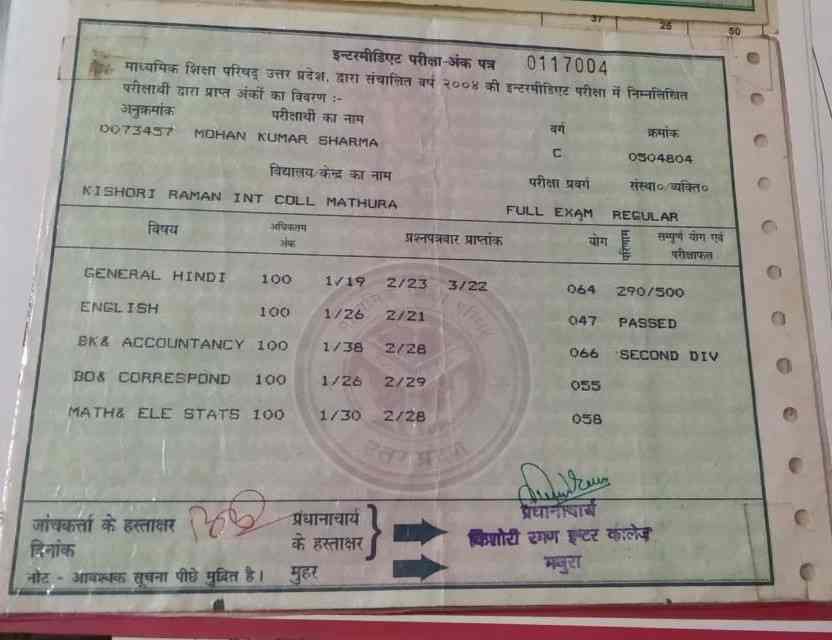 37 25 50
इन्टरमीडिएट परीक्षा-अंक पत्र 0117004
माध्यमिक शिक्षा परिषद् उत्तर प्रदेश, द्वारा संचालित वर्ष २००४ की इन्टरमीडिएट परीक्षा में निम्नलिखित
परीक्षार्थी द्वारा प्राप्त अंकों का विवरण :-
अनुक्रमांक परीक्षार्थी का नाम वर्ग क्रमांक
0073457 MOHAN KUMAR SHARMA C 0504804
विद्यालय/केन्द्र का नाम परीक्षा प्रवर्ग संस्था०/व्यक्ति०
KISHORI RAMAN INT COLL MATHURA FULL EXAM REGULAR
विषय अधिकतम अंक प्रश्नपत्रवार प्राप्तांक योग परिणाम सम्पूर्ण योग एवं परीक्षाफल
GENERAL HINDI 100 1/19 2/23 3/22 064 290/500
ENGLISH 100 1/26 2/21 047 PASSED
BK& ACCOUNTANCY 100 1/38 2/28 066 SECOND DIV
BO& CORRESPOND 100 1/26 2/29 055
MATH& ELE STATS 100 1/30 2/28 058
जांचकर्त्ता के हस्ताक्षर प्रधानाचार्य प्रधानाचार्य
दिनांक के हस्ताक्षर किशोरी रमण इन्टर कालेज
नोट - आवश्यक सूचना पीछे मुद्रित है। मुहर मथुरा